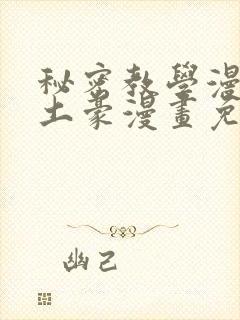 秘密教學漫
土豪漫畫免
幽己